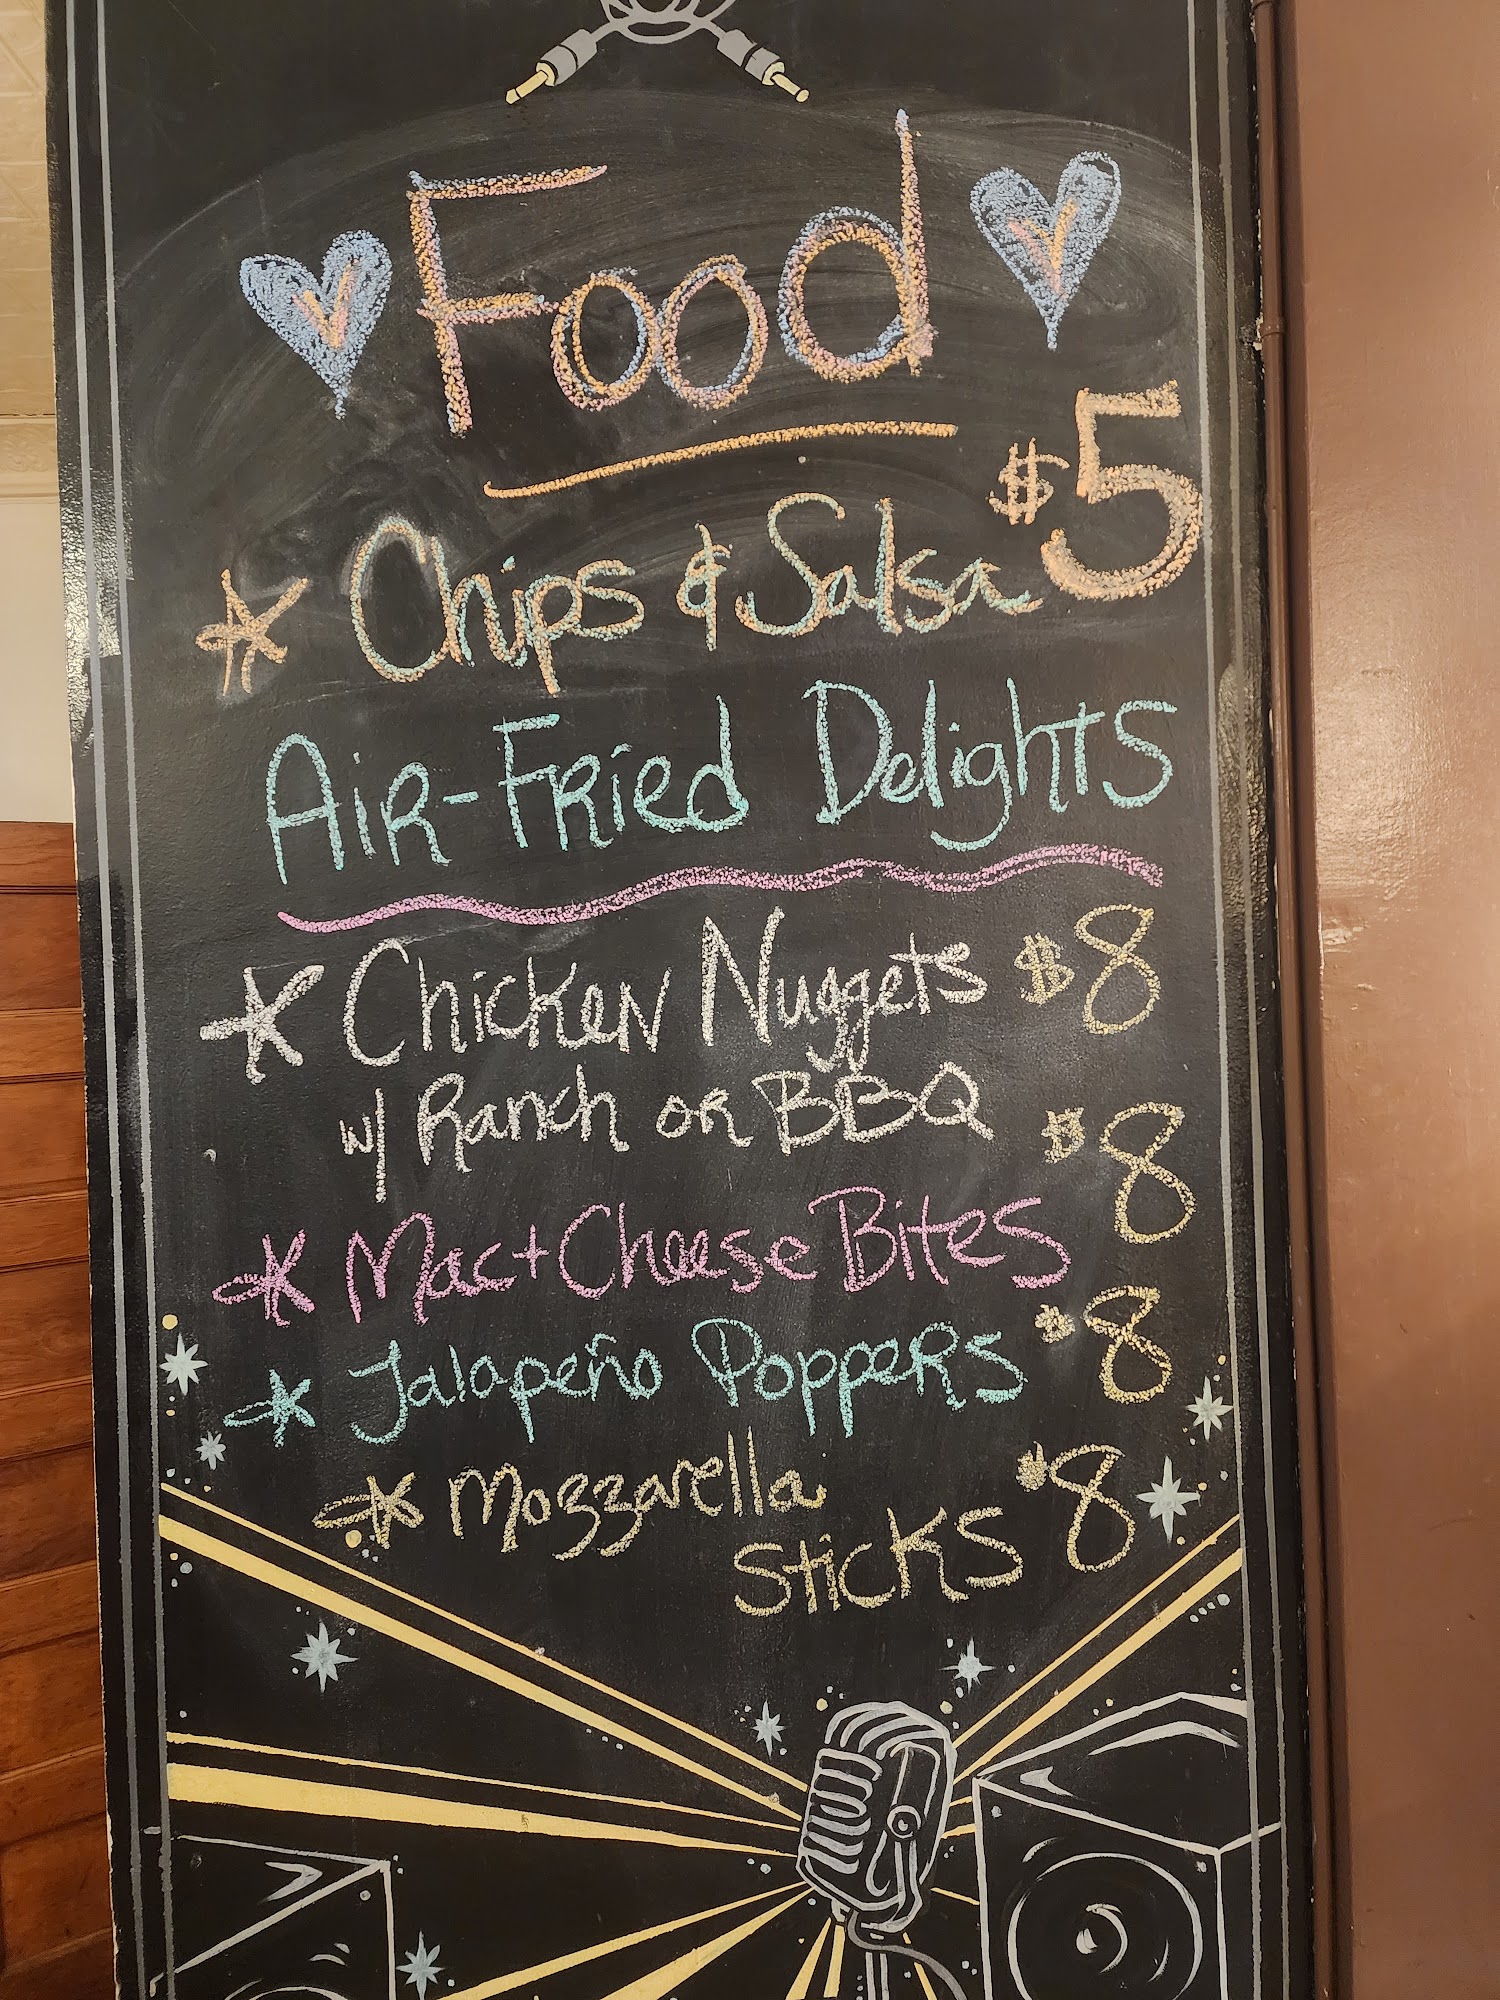 Food
* Chips & Salsa $5
Air-Fried Delights
* Chicken Nuggets $8
w/ Ranch or BBQ
* Mac + Cheese Bites $8
* Jalapeño Poppers $8
* Mozzarella
Sticks $8